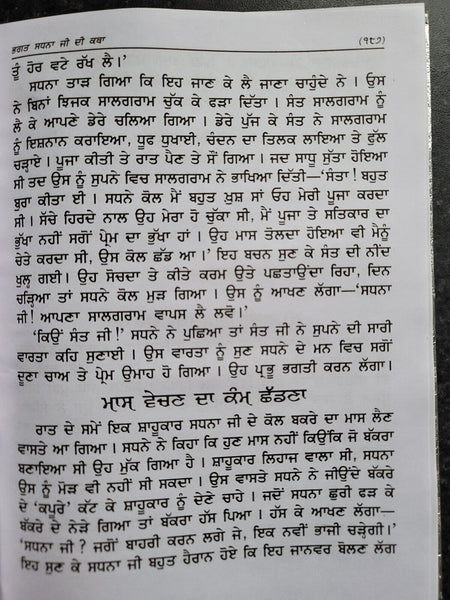 ਭਗਤ ਸਧਨਾ ਜੀ ਦੀ ਕਥਾ (੧੯੭)
ਤੂੰ ਹੋਰ ਵਟੇ ਰੱਖ ਲੈ।'
ਸਧਨਾ ਤਾੜ ਗਿਆ ਕਿ ਇਹ ਜਾਣ ਕੇ ਲੈ ਜਾਣਾ ਚਾਹੁੰਦੇ ਨੇ। ਉਸ
ਨੇ ਬਿਨਾਂ ਝਿਜਕ ਸਾਲਗਰਾਮ ਚੁੱਕ ਕੇ ਫੜਾ ਦਿੱਤਾ। ਸੰਤ ਸਾਲਗਰਾਮ ਨੂੰ
ਲੈ ਕੇ ਆਪਣੇ ਡੇਰੇ ਚਲਿਆ ਗਿਆ। ਡੇਰੇ ਪੁੱਜ ਕੇ ਸੰਤ ਨੇ ਸਾਲਗਰਾਮ
ਨੂੰ ਇਸ਼ਨਾਨ ਕਰਾਇਆ, ਧੂਫ ਧੁਖਾਈ, ਚੰਦਨ ਦਾ ਤਿਲਕ ਲਾਇਆ ਤੇ ਫੁੱਲ
ਚੜ੍ਹਾਏ। ਪੂਜਾ ਕੀਤੀ ਤੇ ਰਾਤ ਪੈਣ ਤੇ ਸੌਂ ਗਿਆ। ਜਦ ਸਾਧੂ ਸੁੱਤਾ ਹੋਇਆ
ਸੀ ਤਦ ਉਸ ਨੂੰ ਸੁਪਨੇ ਵਿਚ ਸਾਲਗਰਾਮ ਨੇ ਭਾਖਿਆ ਦਿੱਤੀ—'ਸੰਤਾ! ਬਹੁਤ
ਬੁਰਾ ਕੀਤਾ ਈ। ਸਧਨੇ ਕੋਲ ਮੈਂ ਬਹੁਤ ਖੁਸ਼ ਸਾਂ ਓਹ ਮੇਰੀ ਪੂਜਾ ਕਰਦਾ
ਸੀ। ਸੱਚੇ ਹਿਰਦੇ ਨਾਲ ਉਹ ਮੇਰਾ ਹੋ ਚੁੱਕਾ ਸੀ, ਮੈਂ ਪੂਜਾ ਤੇ ਸਤਿਕਾਰ ਦਾ
ਭੁੱਖਾ ਨਹੀਂ ਸਗੋਂ ਪ੍ਰੇਮ ਦਾ ਭੁੱਖਾ ਹਾਂ। ਉਹ ਮਾਸ ਤੋਲਦਾ ਹੋਇਆ ਵੀ ਮੈਨੂੰ
ਚੇਤੇ ਕਰਦਾ ਸੀ, ਉਸ ਕੋਲ ਛੱਡ ਆ।' ਇਹ ਬਚਨ ਸੁਣ ਕੇ ਸੰਤ ਦੀ ਨੀਂਦ
ਖੁਲ੍ਹ ਗਈ। ਉਹ ਸੋਚਦਾ ਤੇ ਕੀਤੇ ਕਰਮ ਉਤੇ ਪਛਤਾਉਂਦਾ ਰਿਹਾ, ਦਿਨ
ਚੜ੍ਹਿਆ ਤਾਂ ਸਧਨੇ ਕੋਲ ਮੁੜ ਗਿਆ। ਉਸ ਨੂੰ ਆਖਣ ਲੱਗਾ—'ਸਧਨਾ
ਜੀ! ਆਪਣਾ ਸਾਲਗਰਾਮ ਵਾਪਸ ਲੈ ਲਵੋ।'
'ਕਿਉਂ ਸੰਤ ਜੀ!' ਸਧਨੇ ਨੇ ਪੁਛਿਆ ਤਾਂ ਸੰਤ ਜੀ ਨੇ ਸੁਪਨੇ ਦੀ ਸਾਰੀ
ਵਾਰਤਾ ਕਹਿ ਸੁਣਾਈ। ਉਸ ਵਾਰਤਾ ਨੂੰ ਸੁਣ ਸਧਨੇ ਦੇ ਮਨ ਵਿਚ ਸਗੋਂ
ਦੂਣਾ ਚਾਅ ਤੇ ਪ੍ਰੇਮ ਉਮਾਹ ਹੋ ਗਿਆ। ਉਹ ਪ੍ਰਭੂ ਭਗਤੀ ਕਰਨ ਲੱਗਾ।
ਮਾਸ ਵੇਚਣ ਦਾ ਕੰਮ ਛੱਡਣਾ
ਰਾਤ ਦੇ ਸਮੇਂ ਇਕ ਸ਼ਾਹੂਕਾਰ ਸਧਨਾ ਜੀ ਦੇ ਕੋਲ ਬਕਰੇ ਦਾ ਮਾਸ ਲੈਣ
ਵਾਸਤੇ ਆ ਗਿਆ। ਸਧਨੇ ਨੇ ਕਿਹਾ ਕਿ ਹੁਣ ਮਾਸ ਨਹੀਂ ਕਿਉਂਕਿ ਜੋ ਬੱਕਰਾ
ਬਣਾਇਆ ਸੀ ਉਹ ਮੁੱਕ ਗਿਆ ਹੈ। ਸ਼ਾਹੂਕਾਰ ਲਿਹਾਜ ਵਾਲਾ ਸੀ, ਸਧਨਾ
ਉਸ ਨੂੰ ਮੋੜ ਵੀ ਨਹੀਂ ਸੀ ਸਕਦਾ। ਉਸ ਵਾਸਤੇ ਸਧਨੇ ਨੇ ਜੀਉਂਦੇ ਬੱਕਰੇ
ਦੇ 'ਕਪੂਰੇ' ਕੱਟ ਕੇ ਸ਼ਾਹੂਕਾਰ ਨੂੰ ਦੇਣੇ ਚਾਹੇ। ਜਦੋਂ ਸਧਨਾ ਛੁਰੀ ਫੜ ਕੇ
ਬੱਕਰੇ ਦੇ ਨੇੜੇ ਗਿਆ ਤਾਂ ਬੱਕਰਾ ਹੱਸ ਪਿਆ। ਹੱਸ ਕੇ ਆਖਣ ਲੱਗਾ—
'ਸਧਨਾ ਜੀ? ਜਗੋਂ ਬਾਹਰੀ ਕਰਨ ਲਗੇ ਜੇ, ਇਕ ਨਵੀਂ ਭਾਜੀ ਚੜ੍ਹੇਗੀ।'
ਇਹ ਸੁਣ ਕੇ ਸਧਨਾ ਜੀ ਬਹੁਤ ਹੈਰਾਨ ਹੋਏ ਕਿ ਇਹ ਜਾਨਵਰ ਬੋਲਣ ਲੱਗ